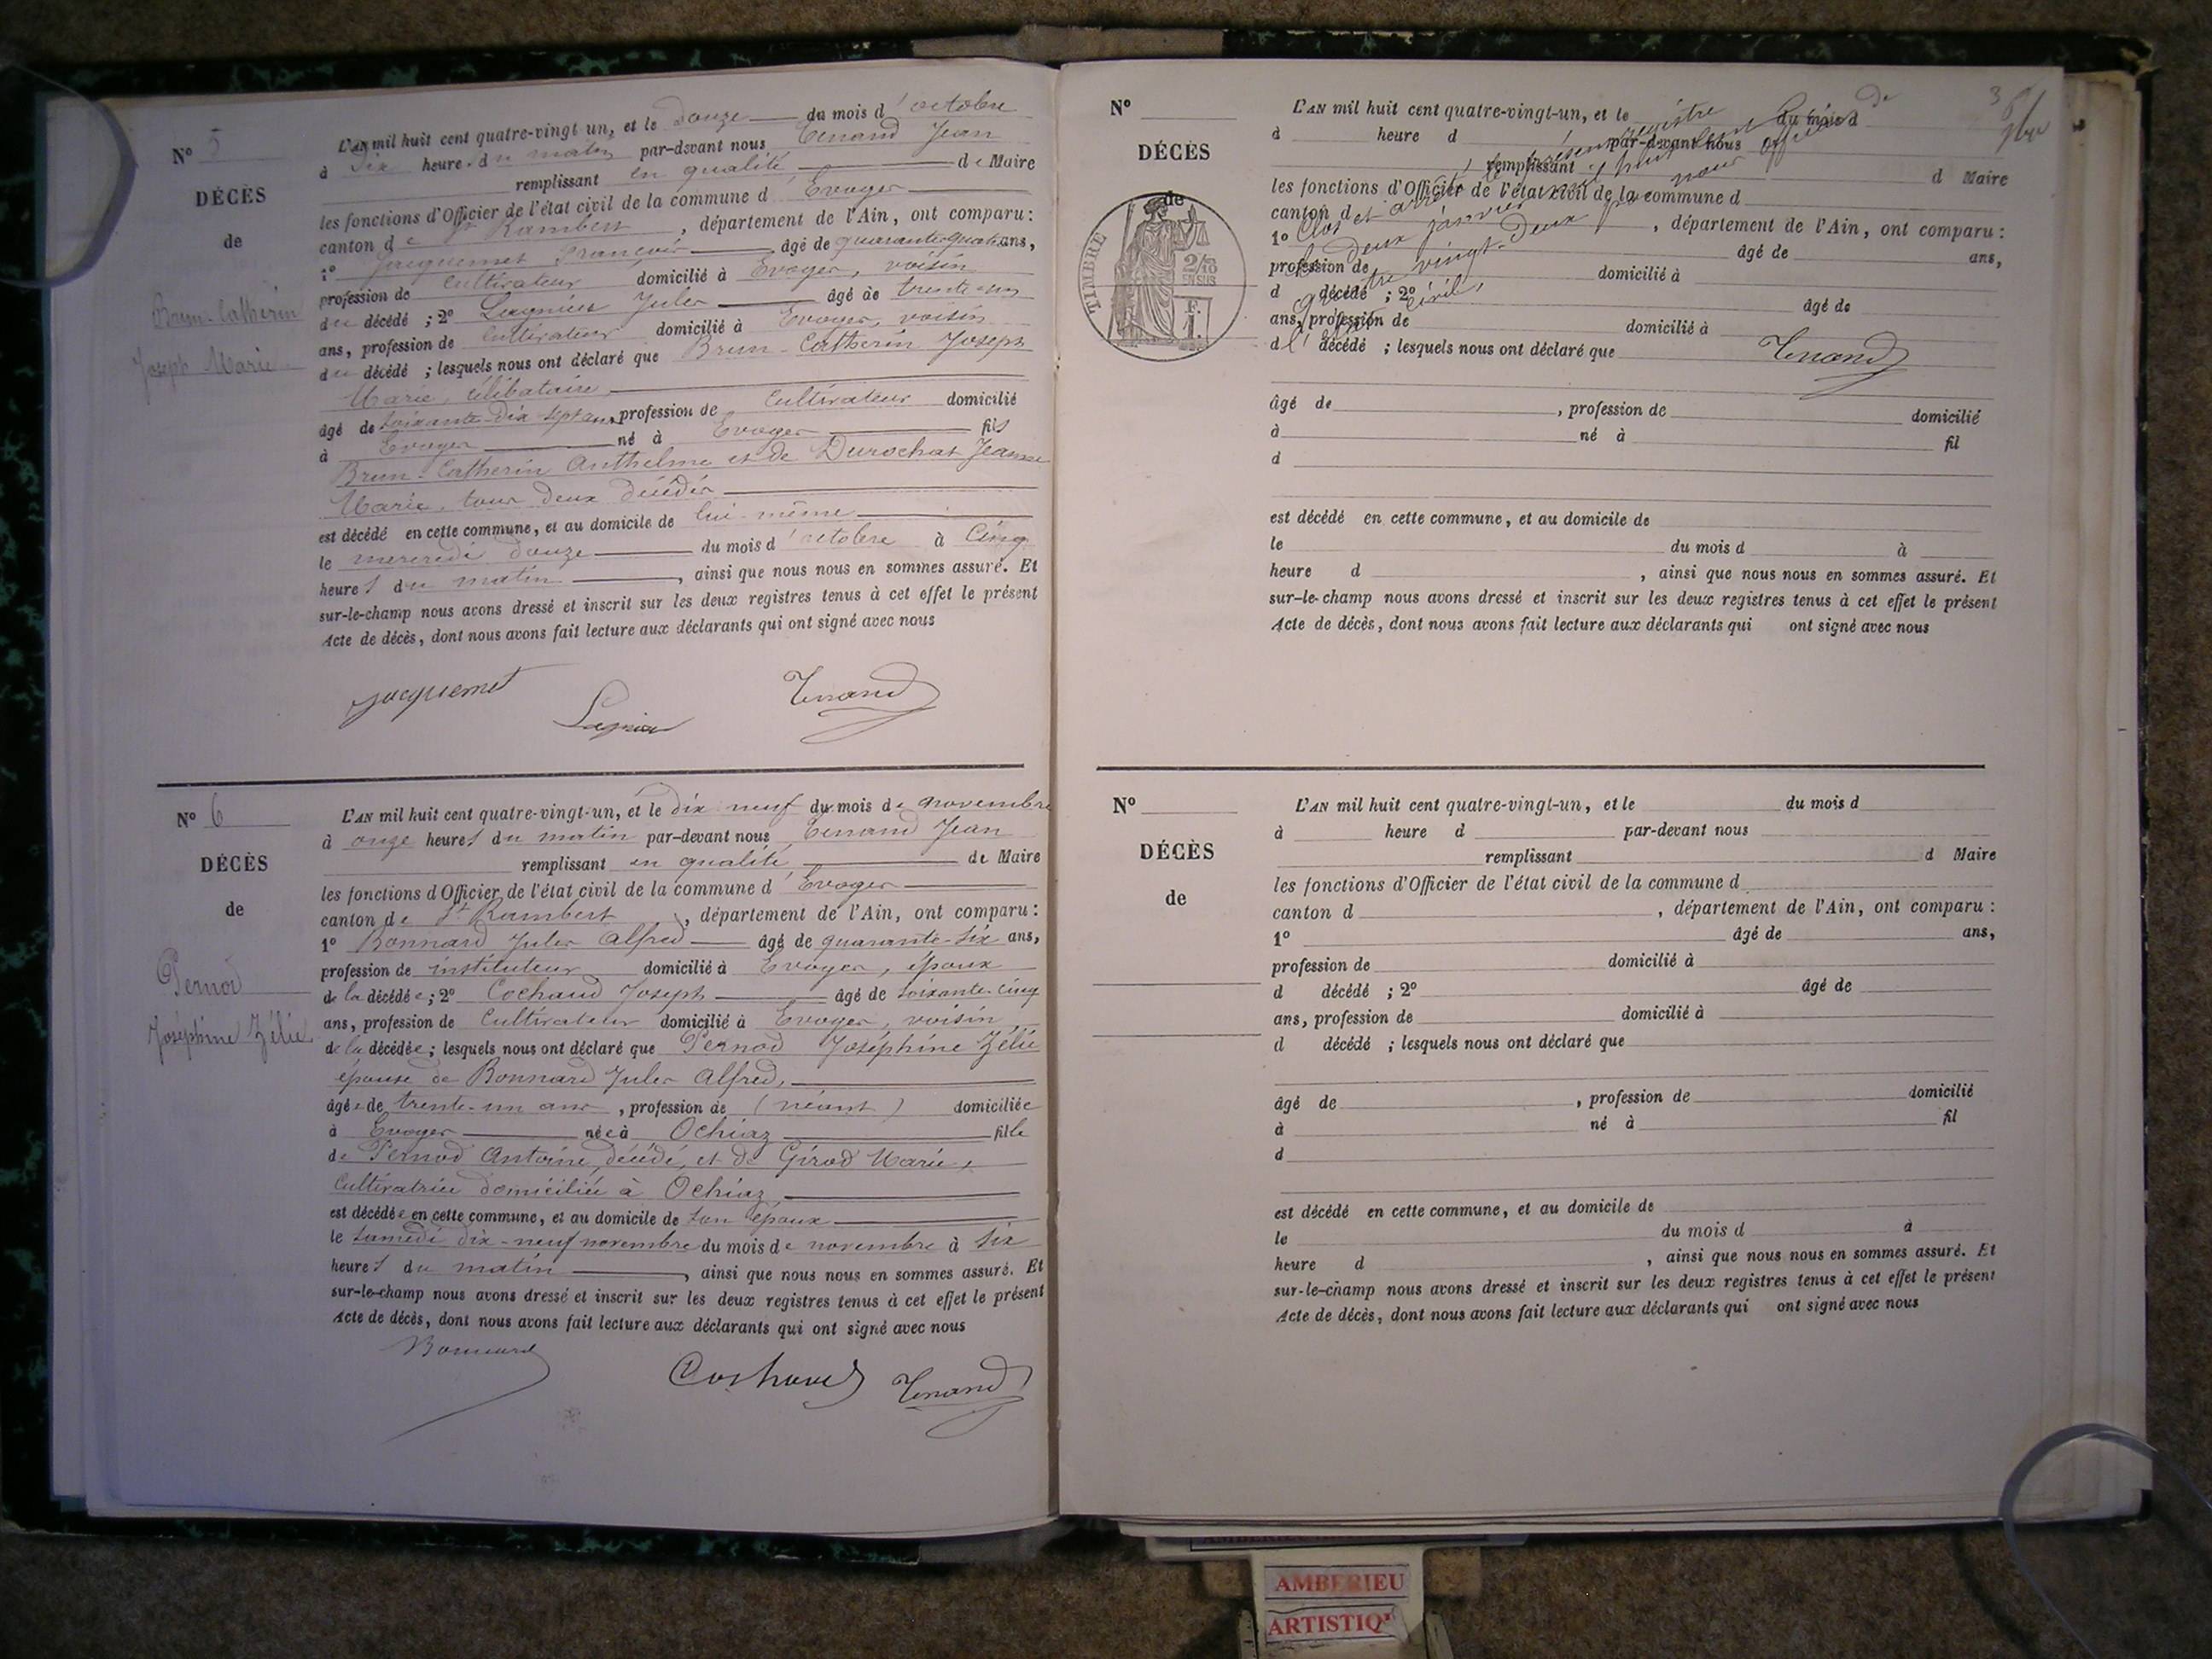 N° 5
DÉCÈS
de
Brun-Catherin
Joseph Marie
L'AN mil huit cent quatre-vingt un, et le douze du mois d'octobre
à dix heures du matin par-devant nous Tenand Jean
remplissant en qualité de Maire
les fonctions d'Officier de l'état civil de la commune d'Evoges
canton de St Rambert, département de l'Ain, ont comparu :
1° Jacquemet François âgé de quarante-quatre ans,
profession de cultivateur domicilié à Evoges, voisin
du décédé ; 2° Jules âgé de trente-un
ans, profession de cultivateur domicilié à Evoges, voisin
du décédé ; lesquels nous ont déclaré que Brun-Catherin Joseph
Marie, célibataire
âgé de soixante-dix sept ans, profession de cultivateur domicilié
à Evoges né à Evoges fils
Brun-Catherin Anthelme et de Durochat Jeanne
Marie, tous deux décédés
est décédé en cette commune, et au domicile de lui-même
le mercredi douze du mois d'octobre à cinq
heures du matin, ainsi que nous nous en sommes assuré. Et
sur-le-champ nous avons dressé et inscrit sur les deux registres tenus à cet effet le présent
Acte de décès, dont nous avons fait lecture aux déclarants qui ont signé avec nous
Jacquemet
Tenand
N° 6
DÉCÈS
de
Pernod
Joséphine Zélie
L'AN mil huit cent quatre-vingt-un, et le dix neuf du mois de novembre
à onze heures du matin par-devant nous Tenand Jean
remplissant en qualité de Maire
les fonctions d'Officier de l'état civil de la commune d'Evoges
canton de St Rambert, département de l'Ain, ont comparu :
1° Bonnard Jules Alfred âgé de quarante-six ans,
profession de instituteur domicilié à Evoges, époux
de la décédée ; 2° Cochaud Joseph âgé de soixante-cinq
ans, profession de cultivateur domicilié à Evoges, voisin
de la décédée ; lesquels nous ont déclaré que Pernod Joséphine Zélie
épouse de Bonnard Jules Alfred,
âgée de trente-un ans, profession de (néant) domiciliée
à Evoges née à Ochiaz fille
de Pernod Antoine, décédé, et de Girod Marie,
cultivatrice domiciliée à Ochiaz,
est décédée en cette commune, et au domicile de son époux
le samedi dix-neuf novembre du mois de novembre à six
heures du matin, ainsi que nous nous en sommes assuré. Et
sur-le-champ nous avons dressé et inscrit sur les deux registres tenus à cet effet le présent
Acte de décès, dont nous avons fait lecture aux déclarants qui ont signé avec nous
Bonnard
Cochaud Tenand
N°
DÉCÈS
de
TIMBRE
2/10
EN SUS
F.
1.
L'AN mil huit cent quatre-vingt-un, et le du mois d
à heure d par-devant nous
remplissant d Maire
les fonctions d'Officier de l'état civil de la commune d
canton d , département de l'Ain, ont comparu :
1° âgé de ans,
profession de domicilié à
d décédé ; 2° âgé de
ans, profession de domicilié à
d décédé ; lesquels nous ont déclaré que
Clos et arrêté le présent registre
le deux janvier mil huit cent
quatre vingt-deux par nous officier de
l'état civil,
Tenand
âgé de , profession de domicilié
à né à fil
d
est décédé en cette commune, et au domicile de
le du mois d à
heure d , ainsi que nous nous en sommes assuré. Et
sur-le-champ nous avons dressé et inscrit sur les deux registres tenus à cet effet le présent
Acte de décès, dont nous avons fait lecture aux déclarants qui ont signé avec nous
N°
DÉCÈS
de
L'AN mil huit cent quatre-vingt-un, et le du mois d
à heure d par-devant nous
remplissant d Maire
les fonctions d'Officier de l'état civil de la commune d
canton d , département de l'Ain, ont comparu :
1° âgé de ans,
profession de domicilié à
d décédé ; 2° âgé de
ans, profession de domicilié à
d décédé ; lesquels nous ont déclaré que
âgé de , profession de domicilié
à né à fil
d
est décédé en cette commune, et au domicile de
le du mois d à
heure d , ainsi que nous nous en sommes assuré. Et
sur-le-champ nous avons dressé et inscrit sur les deux registres tenus à cet effet le présent
Acte de décès, dont nous avons fait lecture aux déclarants qui ont signé avec nous
AMBERIEU
ARTISTIQ